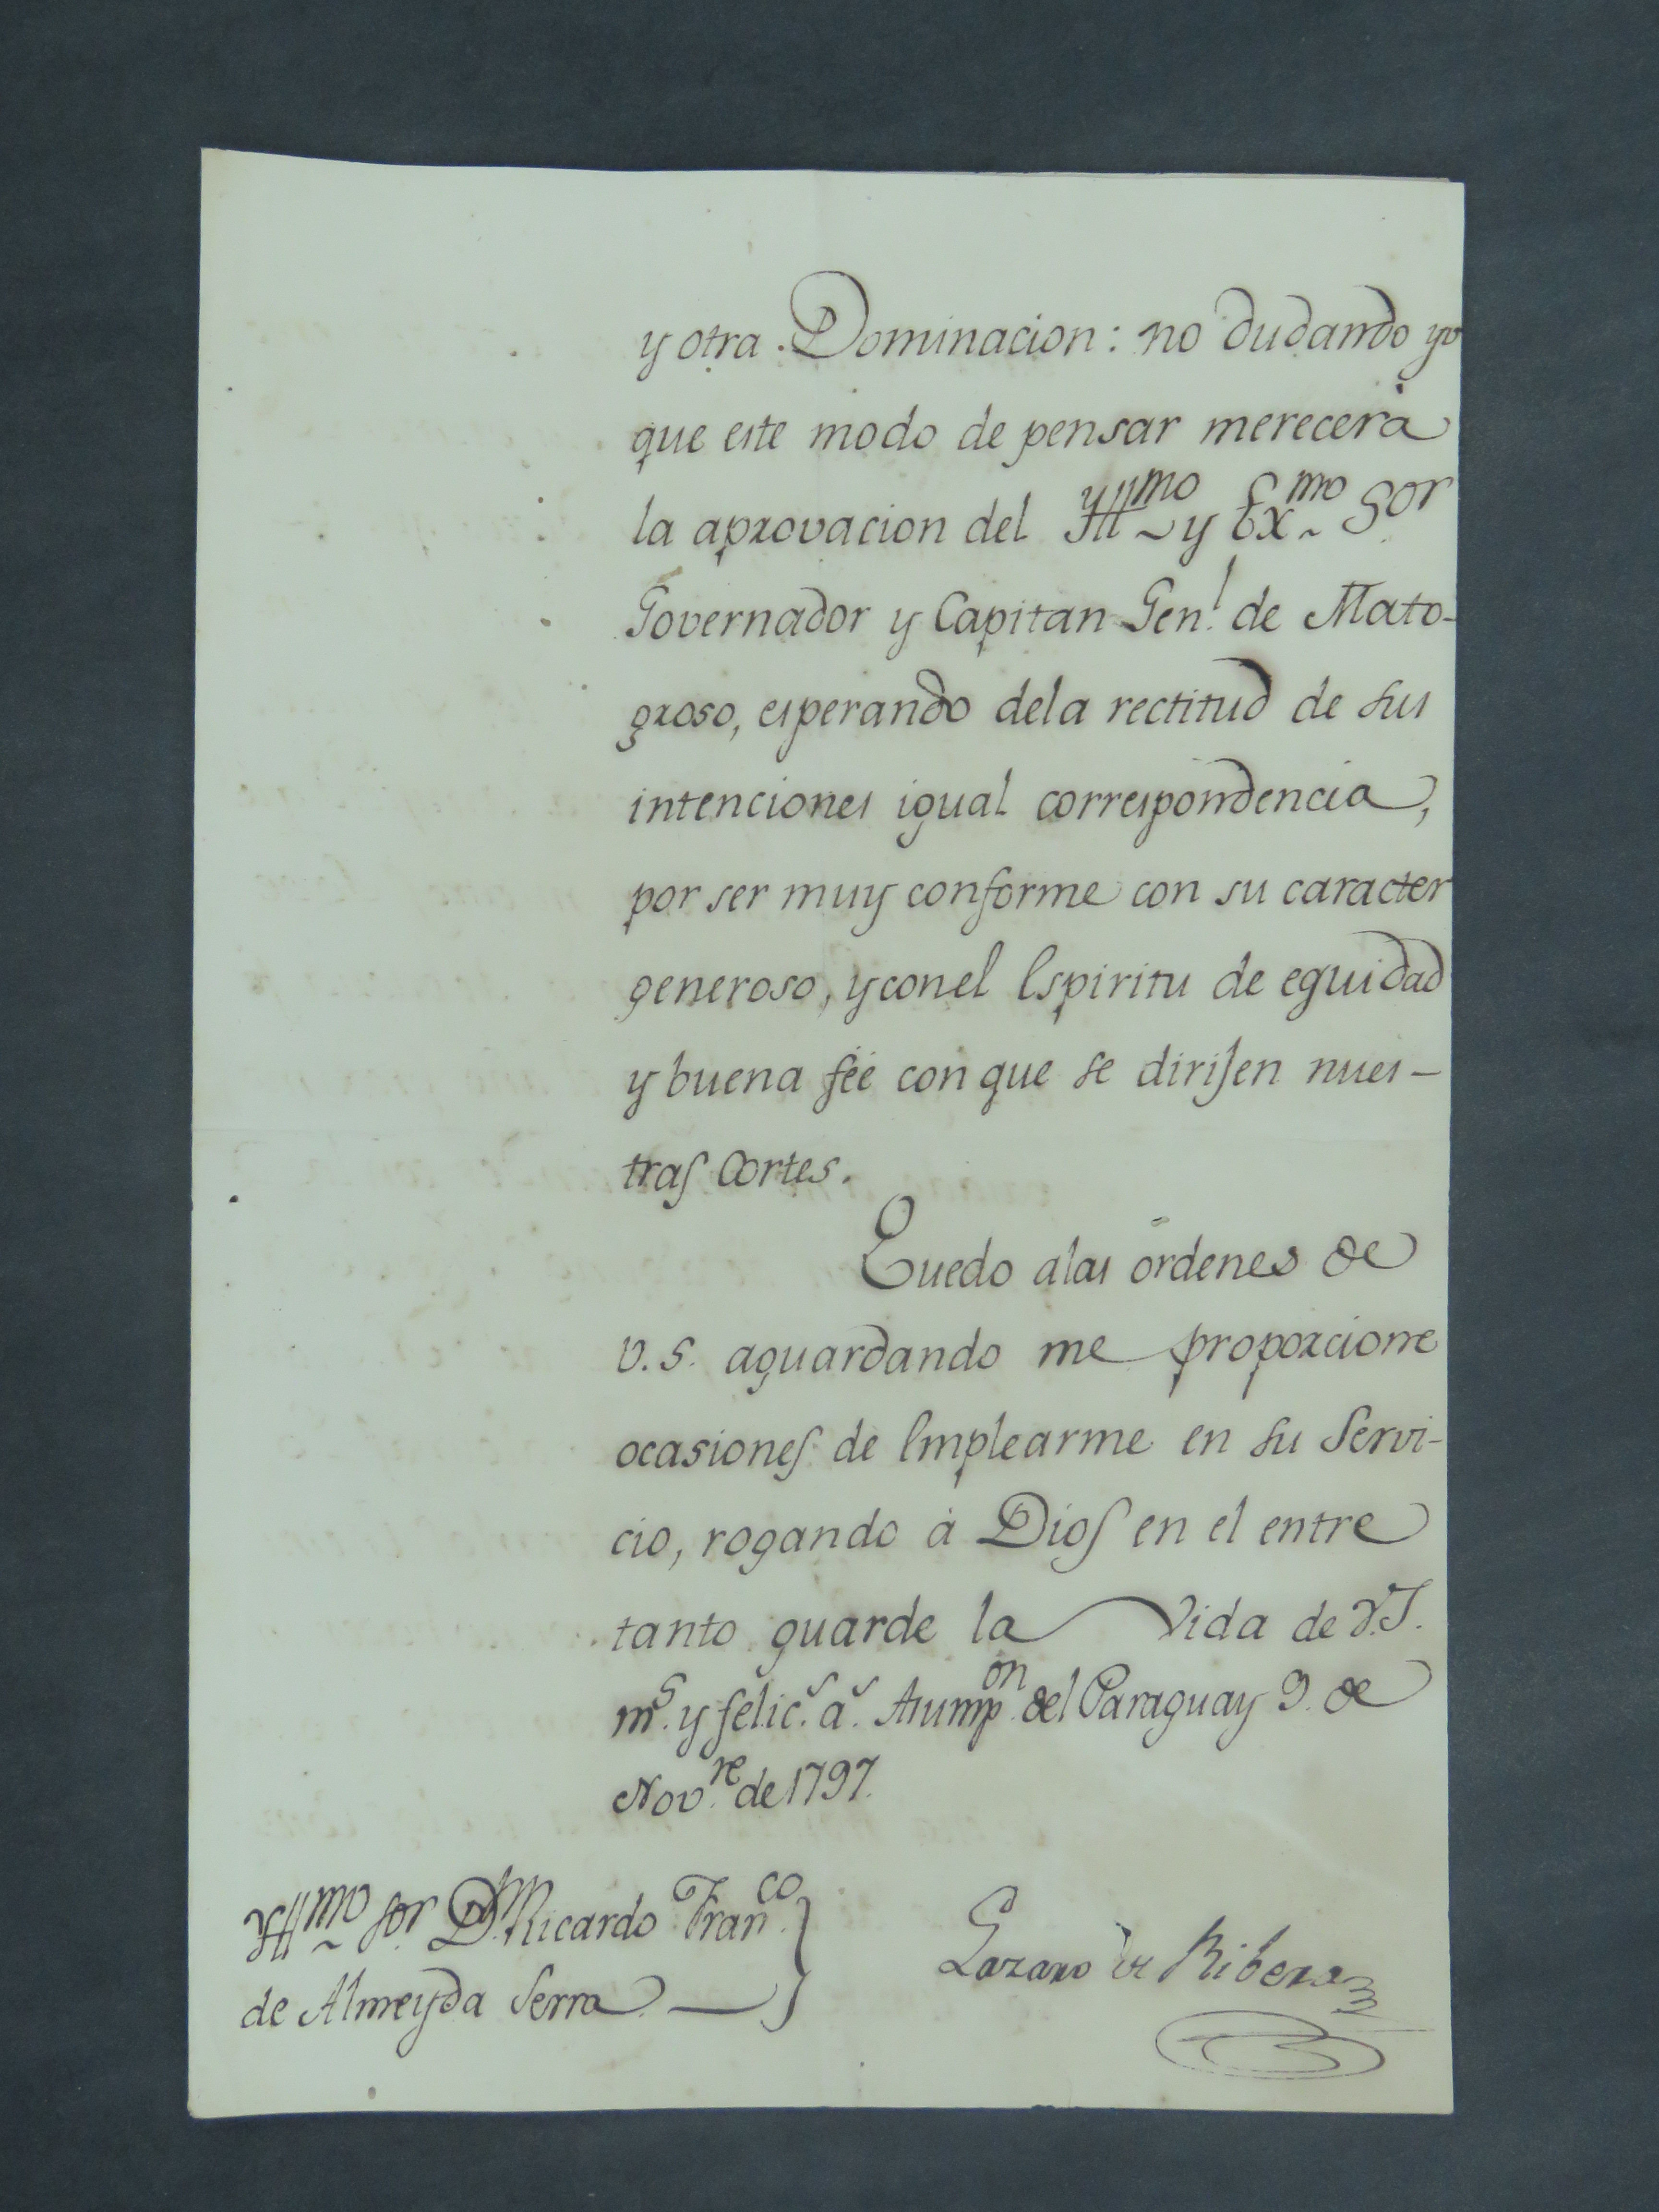 y otra Dominacion: no dudando yo
que este modo de pensar merecerà
la aprovacion del Yll.mo y Ex.mo Sor
Governador y Capitan Gen.l de Mato-
groso, esperando dela rectitud de sus
intenciones igual correspondencia,
por ser muy conforme con su caracter
generoso, y con el Espiritu de equidad
y buena feé con que se dirijen nues-
tras Cortes.
Quedo alas órdenes de
V.S. aguardando me proporcione
ocasiones de Emplearme en su Servi-
cio, rogando à Dios en el entre
tanto guarde la Vida de V.S.
m.s y felic.s a.s Asump.on del Paraguay 9. de
Nov.re de 1797.
Yll.mo Sor D.n Ricardo Fran.co
de Almeyda Serra
Lazaro de Ribera